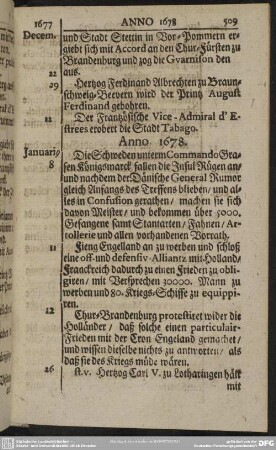 1677 ANNO 1678 509
Decem. und Stadt Stettin in Vor-Pommern er-
giebt sich mit Accord an den Chur-Fürsten zu
Brandenburg und zog die Gvarnison den
22 aus.
29 Hertzog Ferdinand Albrechten zu Braun-
schweig-Bevern wird der Printz August
Ferdinand gebohren.
12 Der Frantzösische Vice-Admiral d' E-
strees erobert die Stadt Tabago.
Anno 1678.
Januari/ Die Schweden unterm Commando Gra-
8 fen Königsmarck fallen die Insul Rügen an/
und nachdem der Dänische General Rumor
gleich Anfangs des Treffens blieben/ und al-
les in Confusion gerathen/ machen sie sich
davon Meister/ und bekommen über 5000.
Gefangene samt Stantarten/ Fahnen/ Ar-
tollerie und allen vorhandenen Vorrath.
11 Fieng Engelland an zu werben und schloß
eine off- und defensiv-Alliantz mit Holland/
Franckreich dadurch zu einen Frieden zu obli-
giren/ mit Versprechen 30000. Mann zu
werben und 80. Kriegs-Schiffe zu equippi-
ren.
12 Chur-Brandenburg protestiret wider die
Holländer/ daß solche einen particulair-
Frieden mit der Cron Engeland gemachet/
und wissen dieselbe nichts zu antworten/ als
daß sie des Kriegs müde wären.
26 st. v. Hertzog Carl V. zu Lotharingen hält
mit